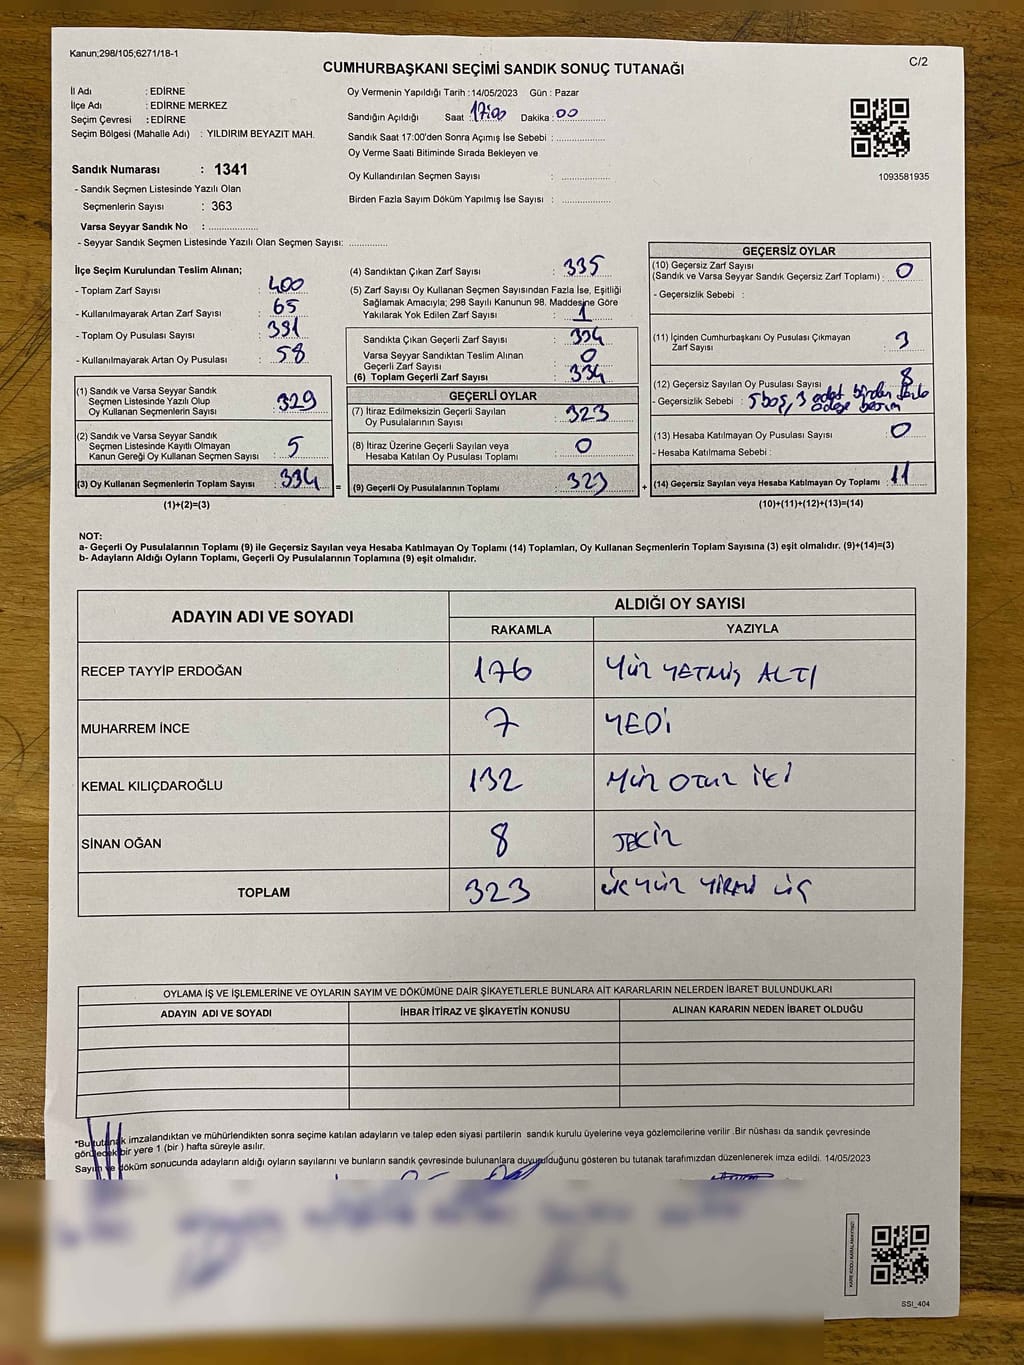 Kanun;298/105;6271/18-1
C/2
CUMHURBAŞKANI SEÇİMİ SANDIK SONUÇ TUTANAĞI
İl Adı : EDİRNE
İlçe Adı : EDİRNE MERKEZ
Seçim Çevresi : EDİRNE
Seçim Bölgesi (Mahalle Adı) : YILDIRIM BEYAZIT MAH.
Oy Vermenin Yapıldığı Tarih :14/05/2023 Gün : Pazar
Sandığın Açıldığı Saat 17:00 Dakika : 00
Sandık Saat 17:00'den Sonra Açımış İse Sebebi :
Oy Verme Saati Bitiminde Sırada Bekleyen ve
Oy Kullandırılan Seçmen Sayısı :
Birden Fazla Sayım Döküm Yapılmış İse Sayısı :
1093581935
Sandık Numarası : 1341
- Sandık Seçmen Listesinde Yazılı Olan
Seçmenlerin Sayısı : 363
Varsa Seyyar Sandık No :
- Seyyar Sandık Seçmen Listesinde Yazılı Olan Seçmen Sayısı:
İlçe Seçim Kurulundan Teslim Alınan;
- Toplam Zarf Sayısı : 400
- Kullanılmayarak Artan Zarf Sayısı : 65
- Toplam Oy Pusulası Sayısı : 391
- Kullanılmayarak Artan Oy Pusulası : 58
(1) Sandık ve Varsa Seyyar Sandık
Seçmen Listesinde Yazılı Olup
Oy Kullanan Seçmenlerin Sayısı : 329
(2) Sandık ve Varsa Seyyar Sandık
Seçmen Listesinde Kayıtlı Olmayan
Kanun Gereği Oy Kullanan Seçmen Sayısı : 5
(3) Oy Kullanan Seçmenlerin Toplam Sayısı : 334
(1)+(2)=(3)
(4) Sandıktan Çıkan Zarf Sayısı : 335
(5) Zarf Sayısı Oy Kullanan Seçmen Sayısından Fazla İse, Eşitliği
Sağlamak Amacıyla; 298 Sayılı Kanunun 98. Maddesine Göre
Yakılarak Yok Edilen Zarf Sayısı : 1
Sandıkta Çıkan Geçerli Zarf Sayısı : 334
Varsa Seyyar Sandıktan Teslim Alınan
Geçerli Zarf Sayısı : 0
(6) Toplam Geçerli Zarf Sayısı : 334
GEÇERLİ OYLAR
(7) İtiraz Edilmeksizin Geçerli Sayılan
Oy Pusulalarının Sayısı : 323
(8) İtiraz Üzerine Geçerli Sayılan veya
Hesaba Katılan Oy Pusulası Toplamı : 0
= (9) Geçerli Oy Pusulalarının Toplamı : 323
GEÇERSİZ OYLAR
(10) Geçersiz Zarf Sayısı
(Sandık ve Varsa Seyyar Sandık Geçersiz Zarf Toplamı) : 0
- Geçersizlik Sebebi :
(11) İçinden Cumhurbaşkanı Oy Pusulası Çıkmayan
Zarf Sayısı : 3
(12) Geçersiz Sayılan Oy Pusulası Sayısı : 8
- Geçersizlik Sebebi : 5 boş, 3 adet birden fazla
adaya basım
(13) Hesaba Katılmayan Oy Pusulası Sayısı : 0
- Hesaba Katılmama Sebebi :
+ (14) Geçersiz Sayılan veya Hesaba Katılmayan Oy Toplamı : 11
(10)+(11)+(12)+(13)=(14)
NOT:
a- Geçerli Oy Pusulalarının Toplamı (9) ile Geçersiz Sayılan veya Hesaba Katılmayan Oy Toplamı (14) Toplamları, Oy Kullanan Seçmenlerin Toplam Sayısına (3) eşit olmalıdır. (9)+(14)=(3)
b- Adayların Aldığı Oyların Toplamı, Geçerli Oy Pusulalarının Toplamına (9) eşit olmalıdır.
ADAYIN ADI VE SOYADI
ALDIĞI OY SAYISI
RAKAMLA YAZIYLA
RECEP TAYYİP ERDOĞAN 176 YÜZ YETMİŞ ALTI
MUHARREM İNCE 7 YEDİ
KEMAL KILIÇDAROĞLU 132 YÜZ OTUZ İKİ
SİNAN OĞAN 8 SEKİZ
TOPLAM 323 ÜÇ YÜZ YİRMİ ÜÇ
OYLAMA İŞ VE İŞLEMLERİNE VE OYLARIN SAYIM VE DÖKÜMÜNE DAİR ŞİKAYETLERLE BUNLARA AİT KARARLARIN NELERDEN İBARET BULUNDUKLARI
ADAYIN ADI VE SOYADI İHBAR İTİRAZ VE ŞİKAYETİN KONUSU ALINAN KARARIN NEDEN İBARET OLDUĞU
*Bu tutanak imzalandıktan ve mühürlendikten sonra seçime katılan adayların ve talep eden siyasi partilerin sandık kurulu üyelerine veya gözlemcilerine verilir .Bir nüshası da sandık çevresinde
görülecek bir yere 1 (bir ) hafta süreyle asılır.
Sayım ve döküm sonucunda adayların aldığı oyların sayılarını ve bunların sandık çevresinde bulunanlara duyurulduğunu gösteren bu tutanak tarafımızdan düzenlenerek imza edildi. 14/05/2023
KARE KODU KARALAMAYINIZ!
SSI_404